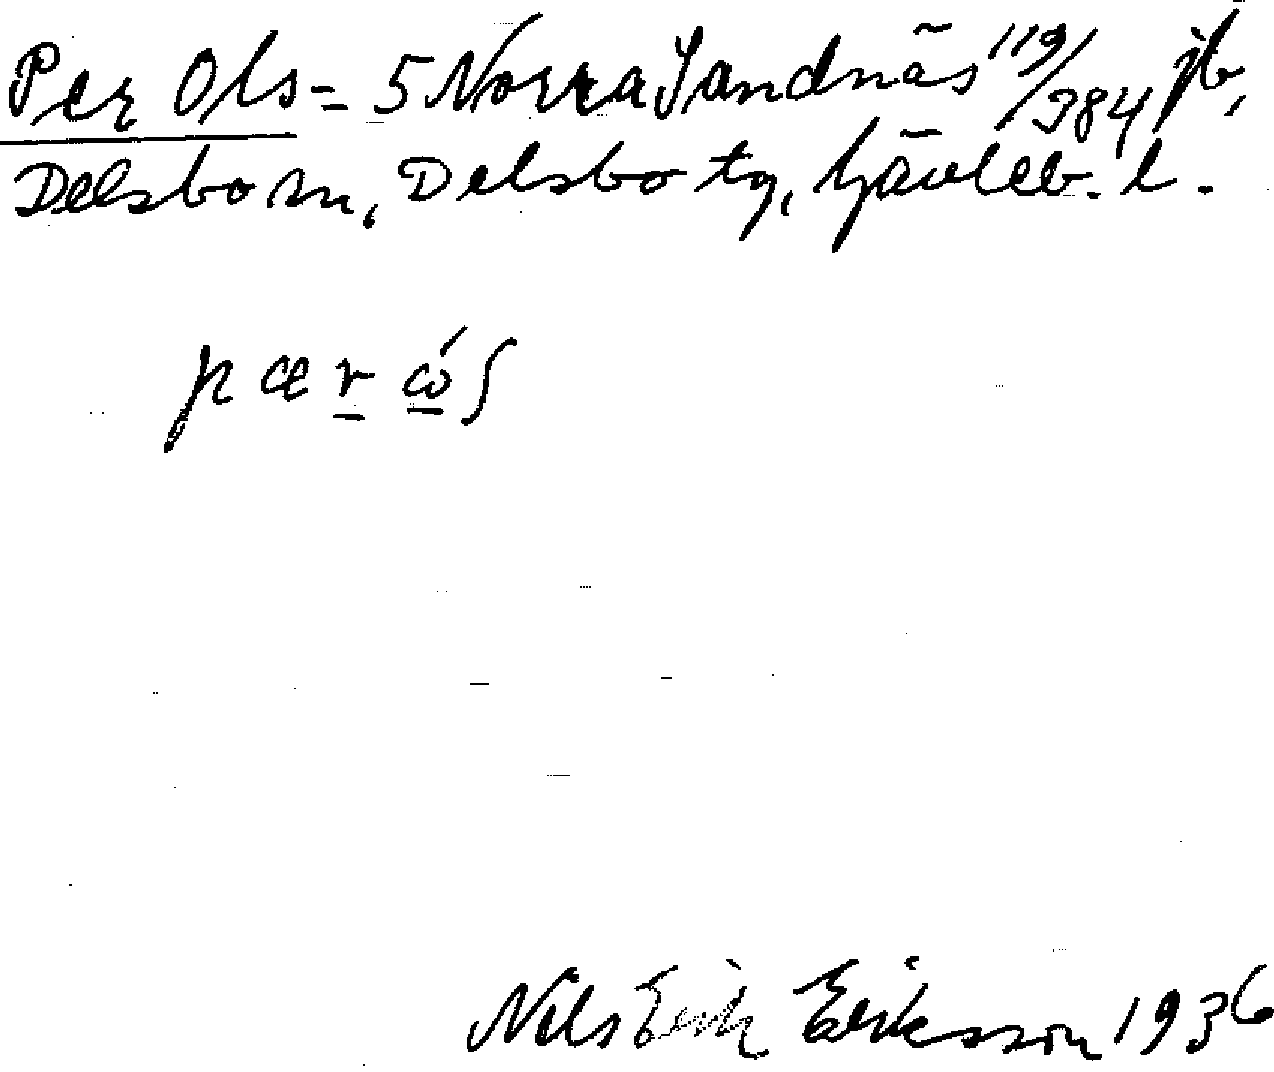 Per Ols = 5 Norra Sandnäs 119/384 jb,
Delsbo sn, Delsbo tg, Gävleb. l.
pær ώʃ
Nils Erik Eriksson 1936